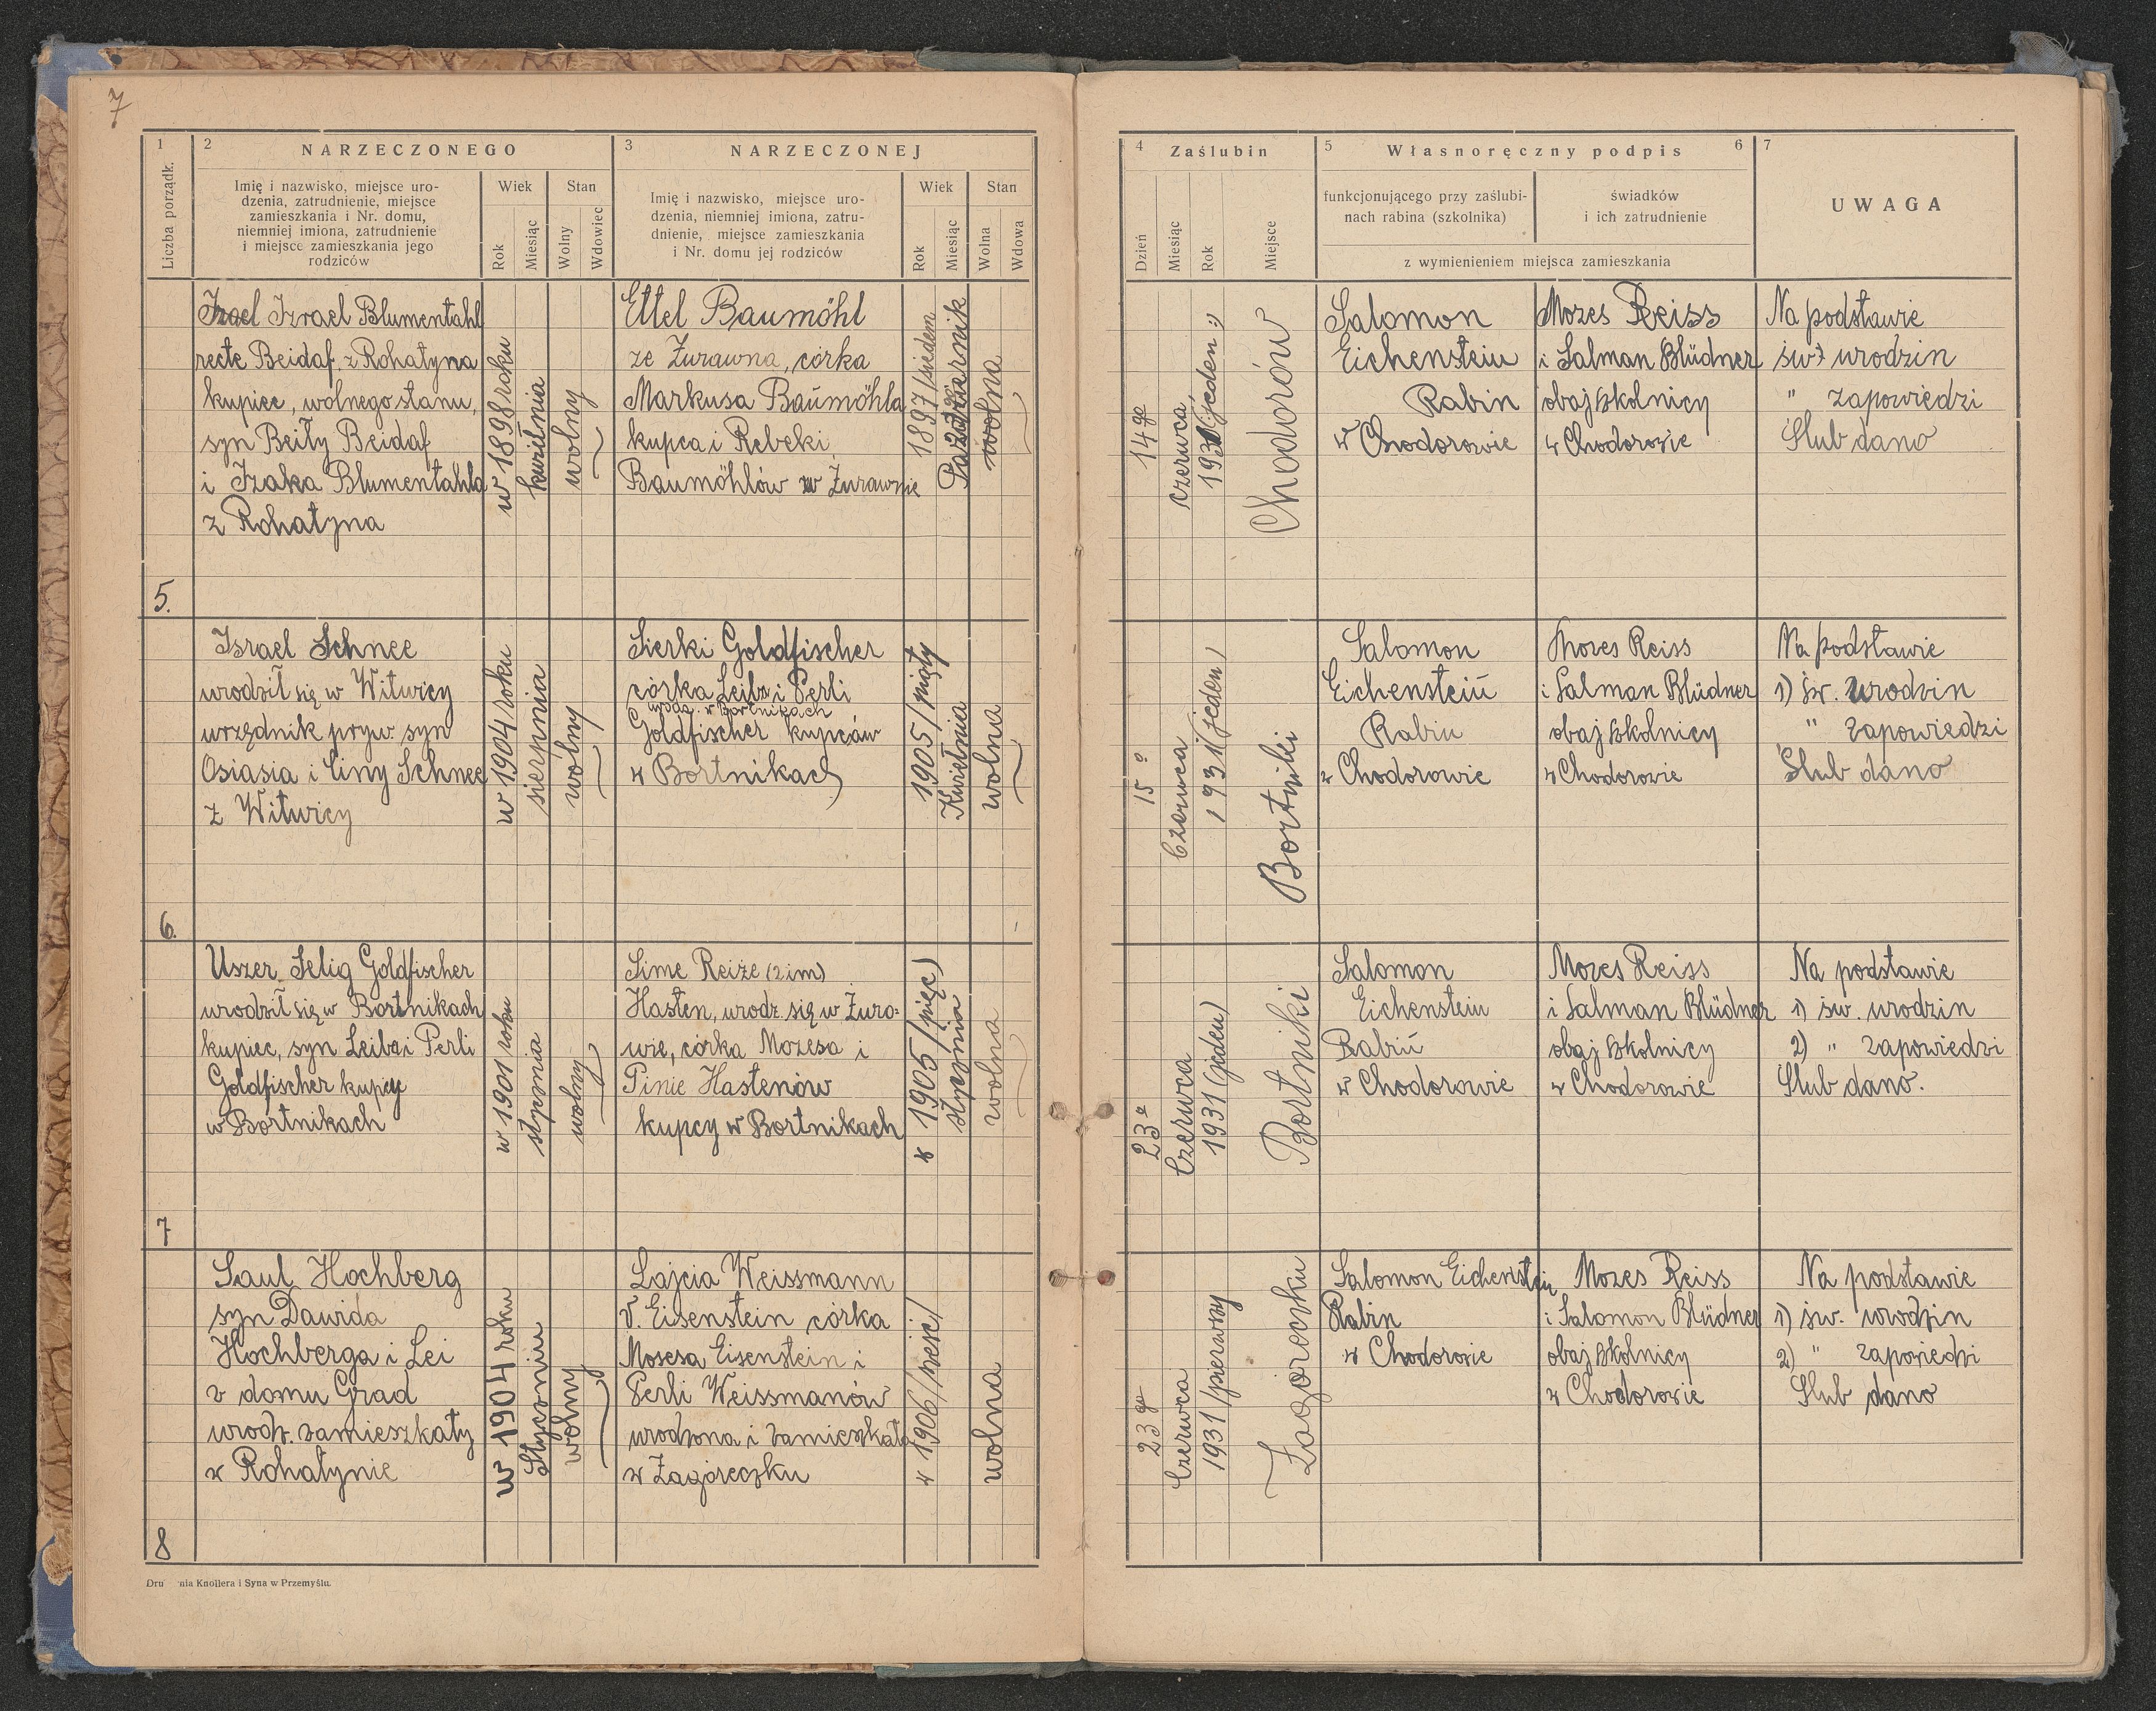 7
1
Liczba porządk.
2 NARZECZONEGO
Imię i nazwisko, miejsce uro-
dzenia, zatrudnienie, miejsce
zamieszkania i Nr. domu,
niemniej imiona, zatrudnienie
i miejsce zamieszkania jego
rodziców
Wiek
Rok
Miesiąc
Stan
Wolny
Wdowiec
3 NARZECZONEJ
Imię i nazwisko, miejsce uro-
dzenia, niemniej imiona, zatru-
dnienie, miejsce zamieszkania
i Nr. domu jej rodziców
Wiek
Rok
Miesiąc
Stan
Wolna
Wdowa
4 Zaślubin
Dzień
Miesiąc
Rok
Miejsce
5 Własnoręczny podpis 6
funkcjonującego przy zaślubi-
nach rabina (szkolnika)
świadków
i ich zatrudnienie
z wymienieniem miejsca zamieszkania
7
UWAGA
5.
Izrael Blumentahl
recte Beidaf, z Rohatyna
kupiec, wolnego stanu,
syn Beiły Beidaf
i Izaka Blumentahla
z Rohatyna
w 1898 roku
kwietnia
wolny
Ettel Baumöhl
ze Żurawna, córka
Markusa Baumöhla
kupca i Rebeki
Baumöhlów w Żurawnie
1897/siedem
Październik
wolna
14go
czerwca,
1931 (jeden :)
Chodorów
Salomon
Eichenstein
Rabin
w Chodorowie
Mozes Reiss
i Salman Blüdner
obaj szkolnicy
w Chodorowie
Na podstawie
św. urodzin
" zapowiedzi
Ślub dano
6.
Israel Schnee
urodził się w Witwicy
urzędnik pryw. syn
Osiasia i Ciny Schnee
z Witwicy
w 1904 roku
sierpnia
wolny
Sierki Goldfischer
córka Leiba i Perli
urodz. w Bortnikach
Goldfischer kupców
w Bortnikach
1905/piąty
Kwietnia
wolna
15
Czerwca
1931 (jeden)
Bortniki
Salomon
Eichenstein
Rabin
w Chodorowie
Mozes Reiss
i Salman Blüdner
obaj szkolnicy
w Chodorowie
Na podstawie
1) św. urodzin
" zapowiedzi
Ślub dano
7
Uszer Selig Goldfischer
urodził się w Bortnikach
kupiec, syn Leiba i Perli
Goldfischer kupcy
w Bortnikach
w 1901 roku
stycznia
wolny
Sime Reize (2 im)
Hasten, urodz. się w Żuro=
wie, córka Mozesa i
Pinie Hastenów
kupcy w Bortnikach
w 1905 (pięć)
stycznia
wolna
23
Czerwca
1931 (jeden)
Bortniki
Salomon
Eichenstein
Rabin
w Chodorowie
Mozes Reiss
i Salman Blüdner
obaj szkolnicy
w Chodorowie
Na podstawie
1) św. urodzin
2) " zapowiedzi
Ślub dano.
8
Saul Hochberg
syn Dawida
Hochberga i Lei
z domu Grad
urodz. zamieszkały
w Rohatynie
w 1904 roku
Styczniu
wolny
Lajcia Weissmann
v. Eisenstein córka
Mosesa Eisenstein i
Perli Weissmanów
urodzona i zamieszkała
w Zagóreczku
w 1906/sześć/
wolna
23go
Czerwca
1931/pierwszy
Zagóreczku
Salomon Eichenstein
Rabin
w Chodorowie
Mozes Reiss
i Salomon Blüdner
obaj szkolnicy
w Chodorowie
Na podstawie
1) św. urodzin
2) " zapowiedzi
Ślub dano
nia Knollera i Syna w Przemyślu.